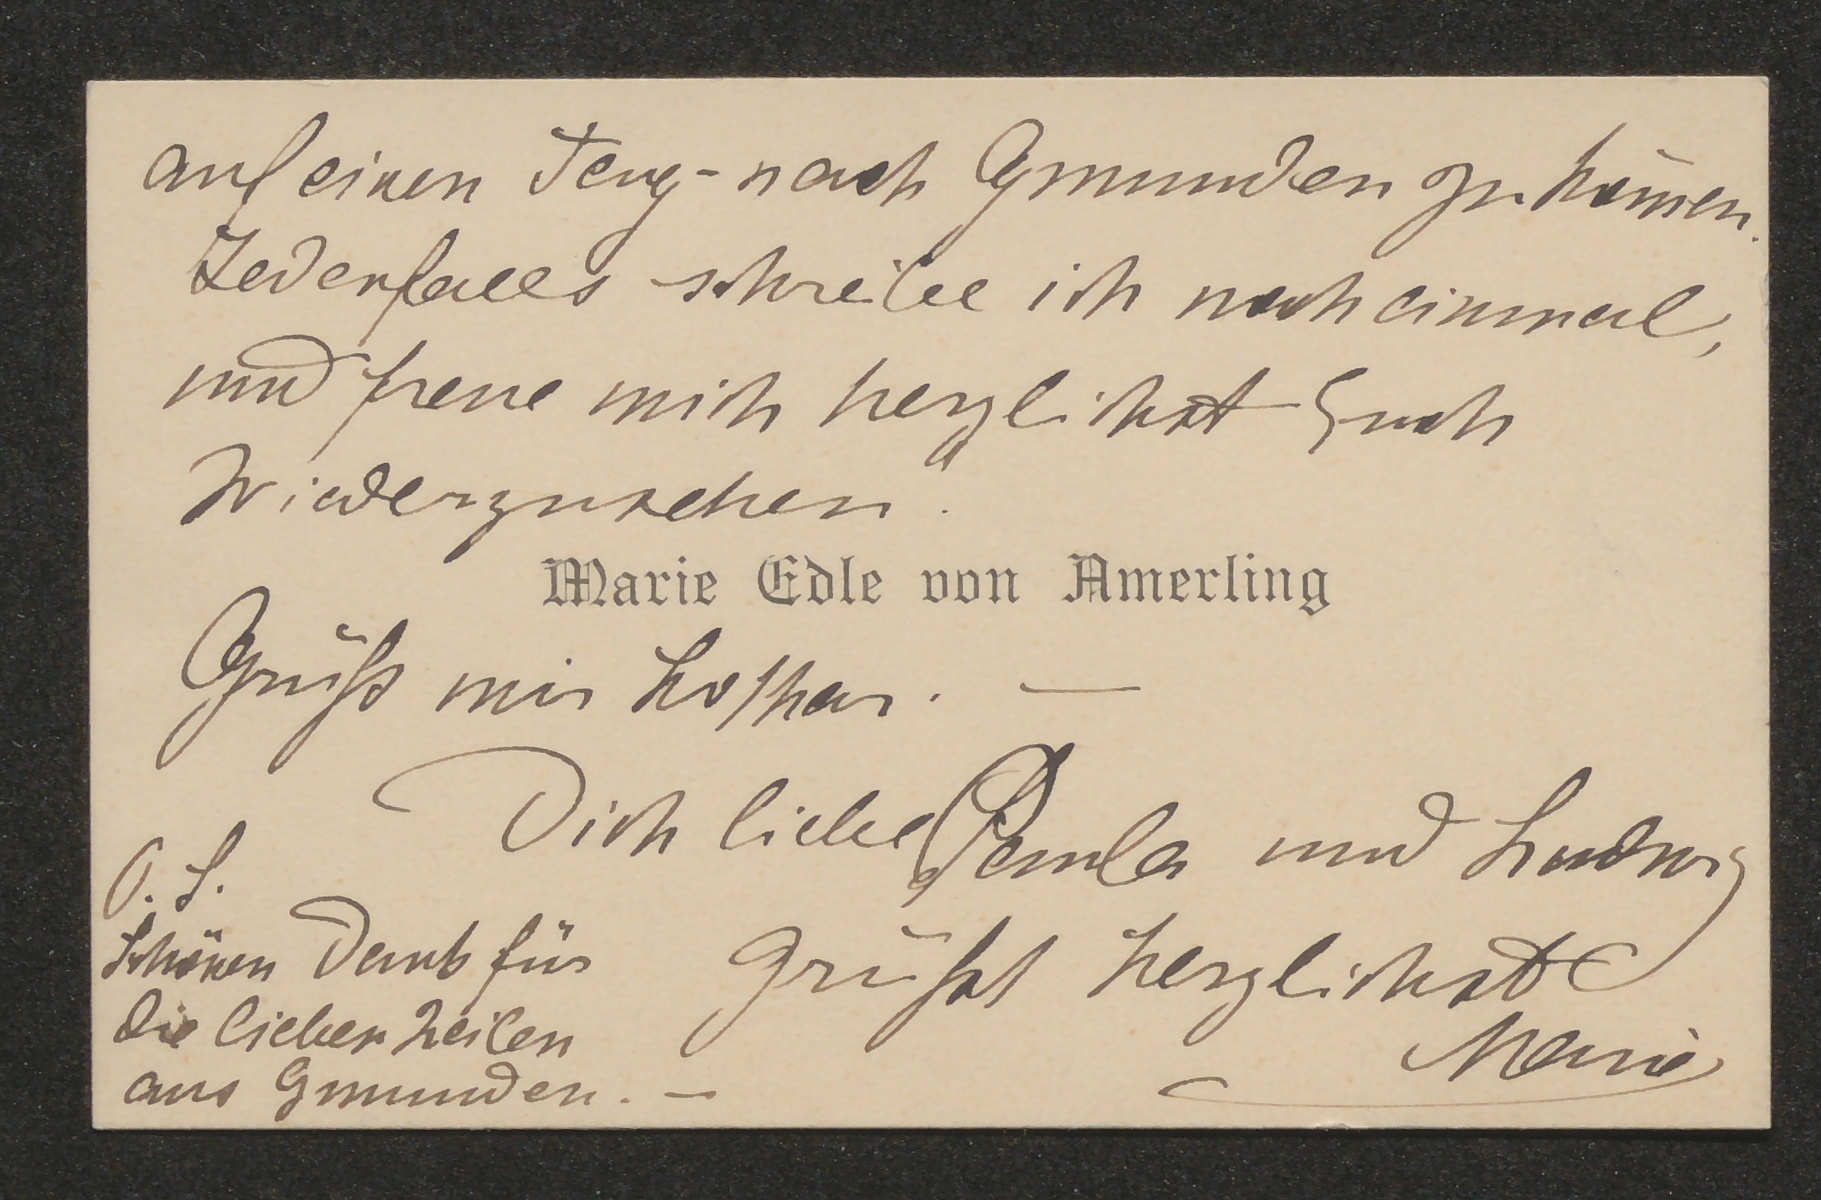 auf einen Tag - nach Gmunden zu kom̄en.
Jedenfalls schreibe ich noch einmal,
und freue mich herzlichst Euch
wiederzusehen.
Marie Edle von Amerling
Grüß mir Lothar. —
Dich liebe Paula und Ludwig
grüßt herzlichst
Marie
P. S.
Schönen Dank für
die lieben Zeilen
aus Gmunden. —